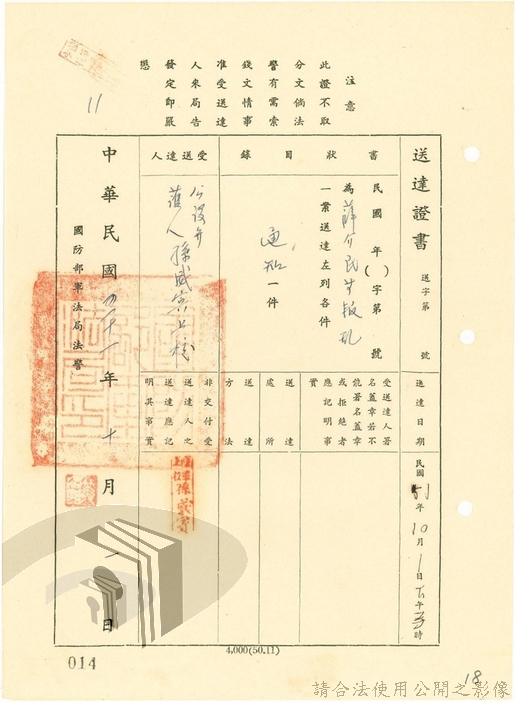 注意
此證不取
分文倘法
警有需索
錢文情事
准受送達
人來局告
發定即嚴
懲
11
送達證書
送字第 號
書狀目錄
民國 年( )字第 號
為薛介民等叛亂
一案送達左列各件
通知一件
受送達人
公設辯
護人孫成
中華民國四十一年十月一日
國防部軍法局法警
送達日期
民國51年10月1日下午 時
受送達人署
名蓋章若不
能署名蓋章
或拒絕者
應記明事
實
送達處所
送達方法
非交付受
送達人之
送達應記
明其事實
4,000(50.11)
014
18
請合法使用公開之影像